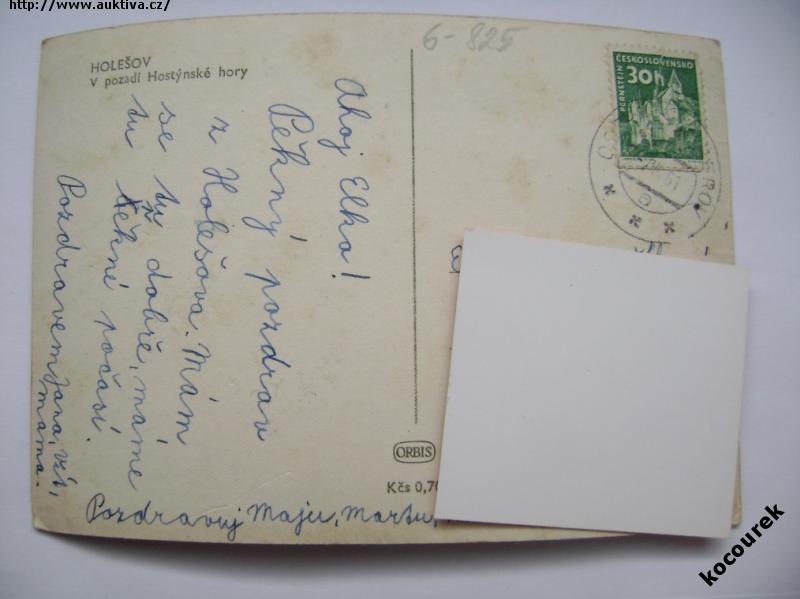 http://www.auktiva.cz/
HOLEŠOV
V pozadí Hostýnské hory
6-825
ČESKOSLOVENSKO
30h
PERNŠTEJN
Ahoj Elka!
Pěkný pozdrav
z Holešova. Mám
se tu dobře, máme
tu též pěkné počasí.
Pozdravem Jana, vši,
mama.
Pozdravuj Maju, Martu,
ORBIS
Kčs 0,70
kocourek